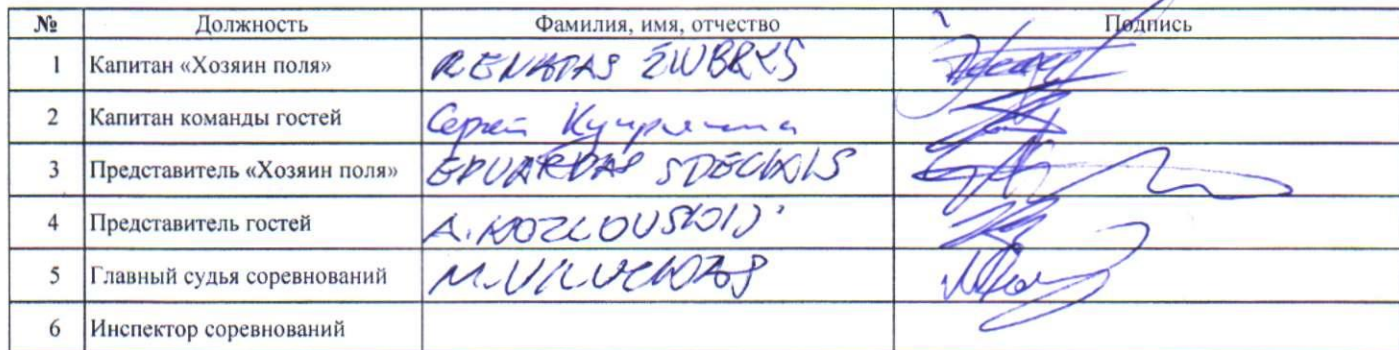 № Должность Фамилия, имя, отчество Подпись
1 Капитан «Хозяин поля» RENATAS
2 Капитан команды гостей Сергей
3 Представитель «Хозяин поля» EDUARDAS
4 Представитель гостей A. KOZLOVSKIJ
5 Главный судья соревнований M.
6 Инспектор соревнований